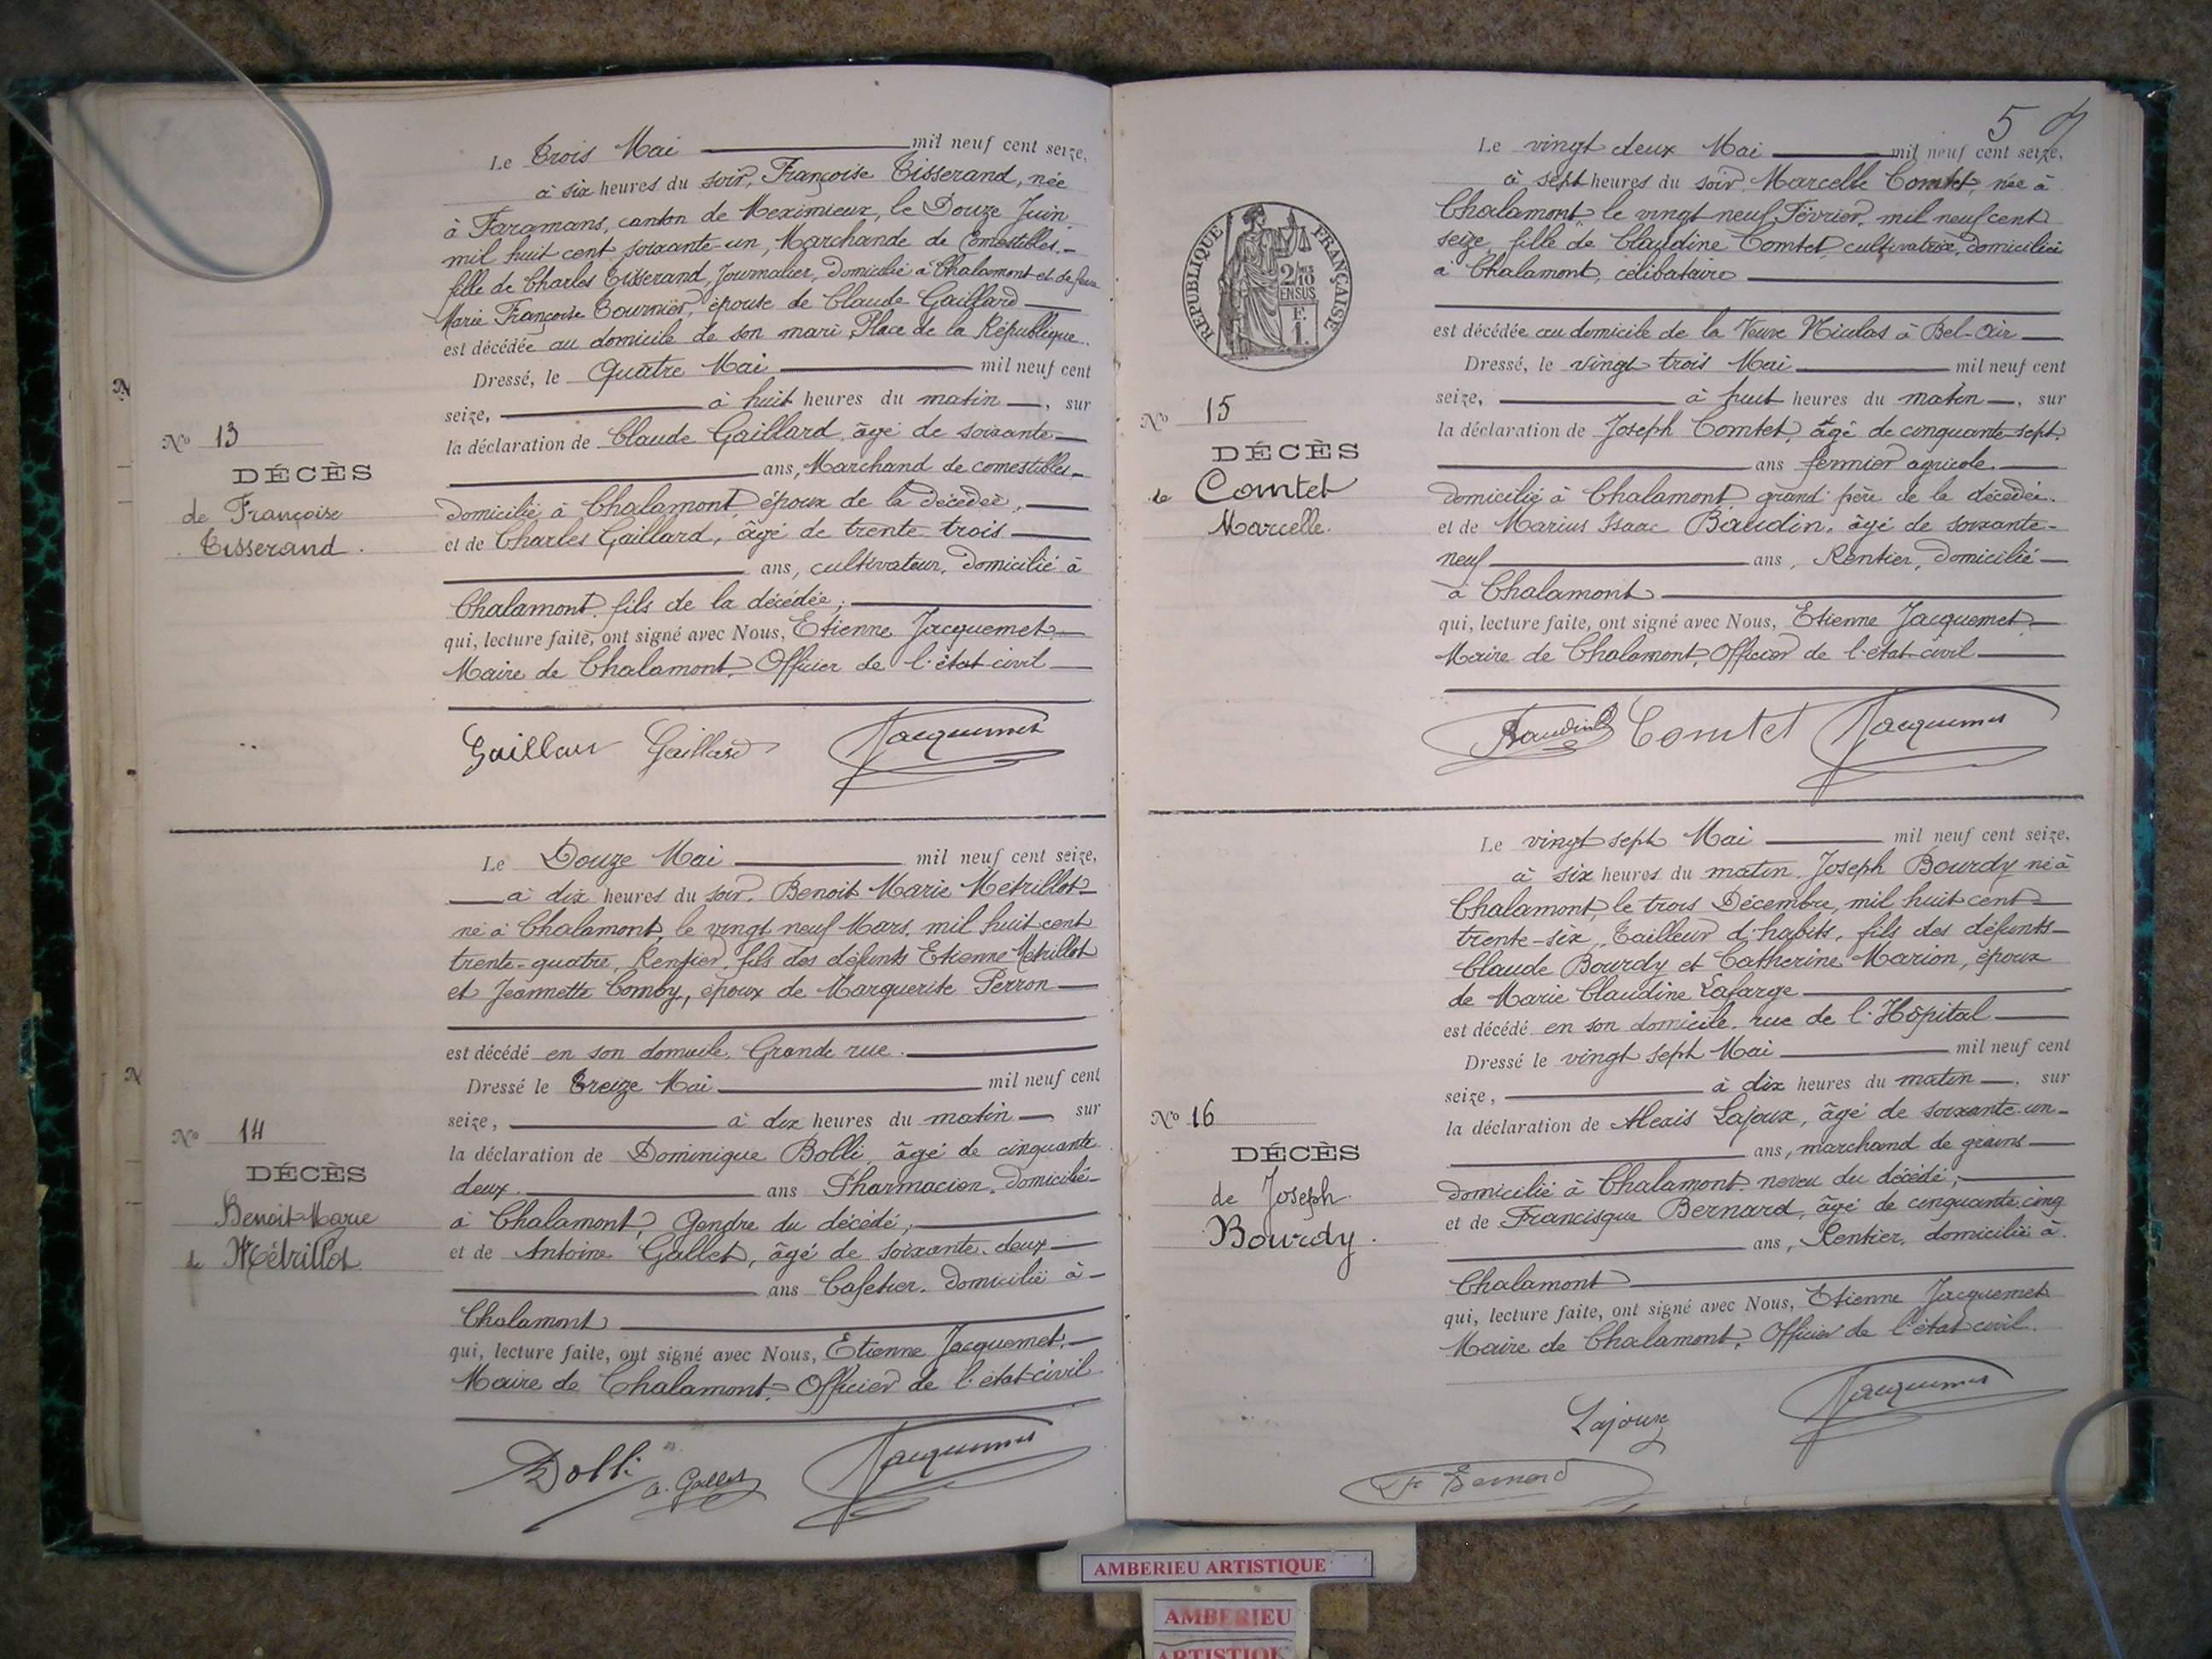 Le Trois Mai mil neuf cent seize,
à six heures du soir, Françoise Tisserand, née
à Faramans, canton de Meximieux, le Douze Juin
mil huit cent soixante-un, Marchande de Comestibles.
fille de Charles Tisserand, Journalier, domicilié à Chalamont et de feue
Marie Françoise Tournier, épouse de Claude Gaillard
est décédée au domicile de son mari, Place de la République.
Dressé, le Quatre Mai mil neuf cent
seize, à huit heures du matin, sur
la déclaration de Claude Gaillard, âgé de soixante
ans, Marchand de comestibles
domicilié à Chalamont, époux de la décédée,
et de Charles Gaillard, âgé de trente trois
ans, cultivateur, domicilié à
Chalamont, fils de la décédée;
qui, lecture faite, ont signé avec Nous, Etienne Jacquemet
Maire de Chalamont, Officier de l'état-civil
Nº 13
DÉCÈS
de Françoise
Tisserand.
Gaillard Gaillard Jacquemet
Le Douze Mai mil neuf cent seize,
à dix heures du soir, Benoit Marie Métrillot
né à Chalamont, le vingt neuf Mars, mil huit cent
trente-quatre, Rentier, fils des défunts Etienne Métrillot
et Jeannette Comby, époux de Marguerite Perron
est décédé en son domicile, Grande rue.
Dressé le Treize Mai mil neuf cent
seize, à dix heures du matin, sur
la déclaration de Dominique Bolli, âgé de cinquante
deux ans Pharmacien, domicilié
à Chalamont, Gendre du décédé,
et de Antoine Gallet, âgé de soixante-deux
ans Cafetier, domicilié à
Chalamont
qui, lecture faite, ont signé avec Nous, Etienne Jacquemet,
Maire de Chalamont, Officier de l'état-civil
Nº 14
DÉCÈS
Benoit-Marie
de Métrillot
D Bolli a. Gallet Jacquemet
5
Le vingt deux Mai mil neuf cent seize,
à sept heures du soir, Marcelle Comtet, née à
Chalamont, le vingt neuf Février, mil neuf cent
seize, fille de Claudine Comtet, cultivatrice, domiciliée
à Chalamont, célibataire
est décédée au domicile de la Veuve Niclas à Bel-Air
Dressé, le vingt trois Mai mil neuf cent
seize, à huit heures du matin, sur
la déclaration de Joseph Comtet, âgé de cinquante-sept
ans fermier agricole
domicilié à Chalamont, grand père de la décédée.
et de Marius Isaac Baudin, âgé de soixante-
neuf ans, Rentier, domicilié
à Chalamont
qui, lecture faite, ont signé avec Nous, Etienne Jacquemet
Maire de Chalamont, Officier de l'état-civil
RÉPUBLIQUE FRANÇAISE
2/10 EN SUS
F.
1.
Nº 15
DÉCÈS
de Comtet
Marcelle.
Baudin Comtet Jacquemet
Le vingt sept Mai mil neuf cent seize,
à six heures du matin, Joseph Bourdy né à
Chalamont, le trois Décembre, mil huit cent
trente-six, Tailleur d'habits, fils des défunts
Claude Bourdy et Catherine Marion, époux
de Marie Claudine Lafarge
est décédé en son domicile, rue de l'Hôpital
Dressé le vingt sept Mai mil neuf cent
seize, à dix heures du matin, sur
la déclaration de Alexis Lajoux, âgé de soixante-un
ans, marchand de grains
domicilié à Chalamont, neveu du décédé,
et de Francisque Bernard, âgé de cinquante-cinq
ans, Rentier, domicilié à
Chalamont
qui, lecture faite, ont signé avec Nous, Etienne Jacquemet
Maire de Chalamont, Officier de l'état civil.
Nº 16
DÉCÈS
de Joseph
Bourdy.
Lajoux Jacquemet
Fr Bernard
AMBERIEU ARTISTIQUE
AMBERIEU
ARTISTIQUE